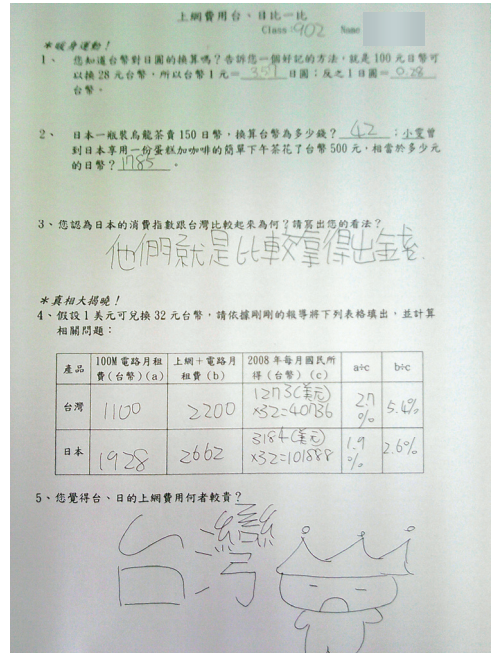 上網費用台、日比一比
Class:902 Name
＊暖身運動！
1、 您知道台幣對日圓的換算嗎？告訴您一個好記的方法，就是100元日幣可
以換28元台幣，所以台幣1元＝3.57日圓；反之1日圓＝0.28
台幣。
2、 日本一瓶裝烏龍茶賣150日幣，換算台幣為多少錢？42；小雯曾
到日本享用一份蛋糕加咖啡的簡單下午茶花了台幣500元，相當於多少元
的日幣？1785。
3、您認為日本的消費指數跟台灣比較起來為何？請寫出您的看法？
他們就是比較拿得出金錢.
＊真相大揭曉！
4、假設1美元可兌換32元台幣，請依據剛剛的報導將下列表格填出，並計算
相關問題：
產品 100M電路月租費(台幣)(a) 上網＋電路月租費(b) 2008年每月國民所得(台幣)(c) a÷c b÷c
台灣 1100 2200 1273(美元)×32=40736 2.7% 5.4%
日本 1928 2662 3184(美元)×32=101888 1.9% 2.6%
5、您覺得台、日的上網費用何者較貴？
台灣